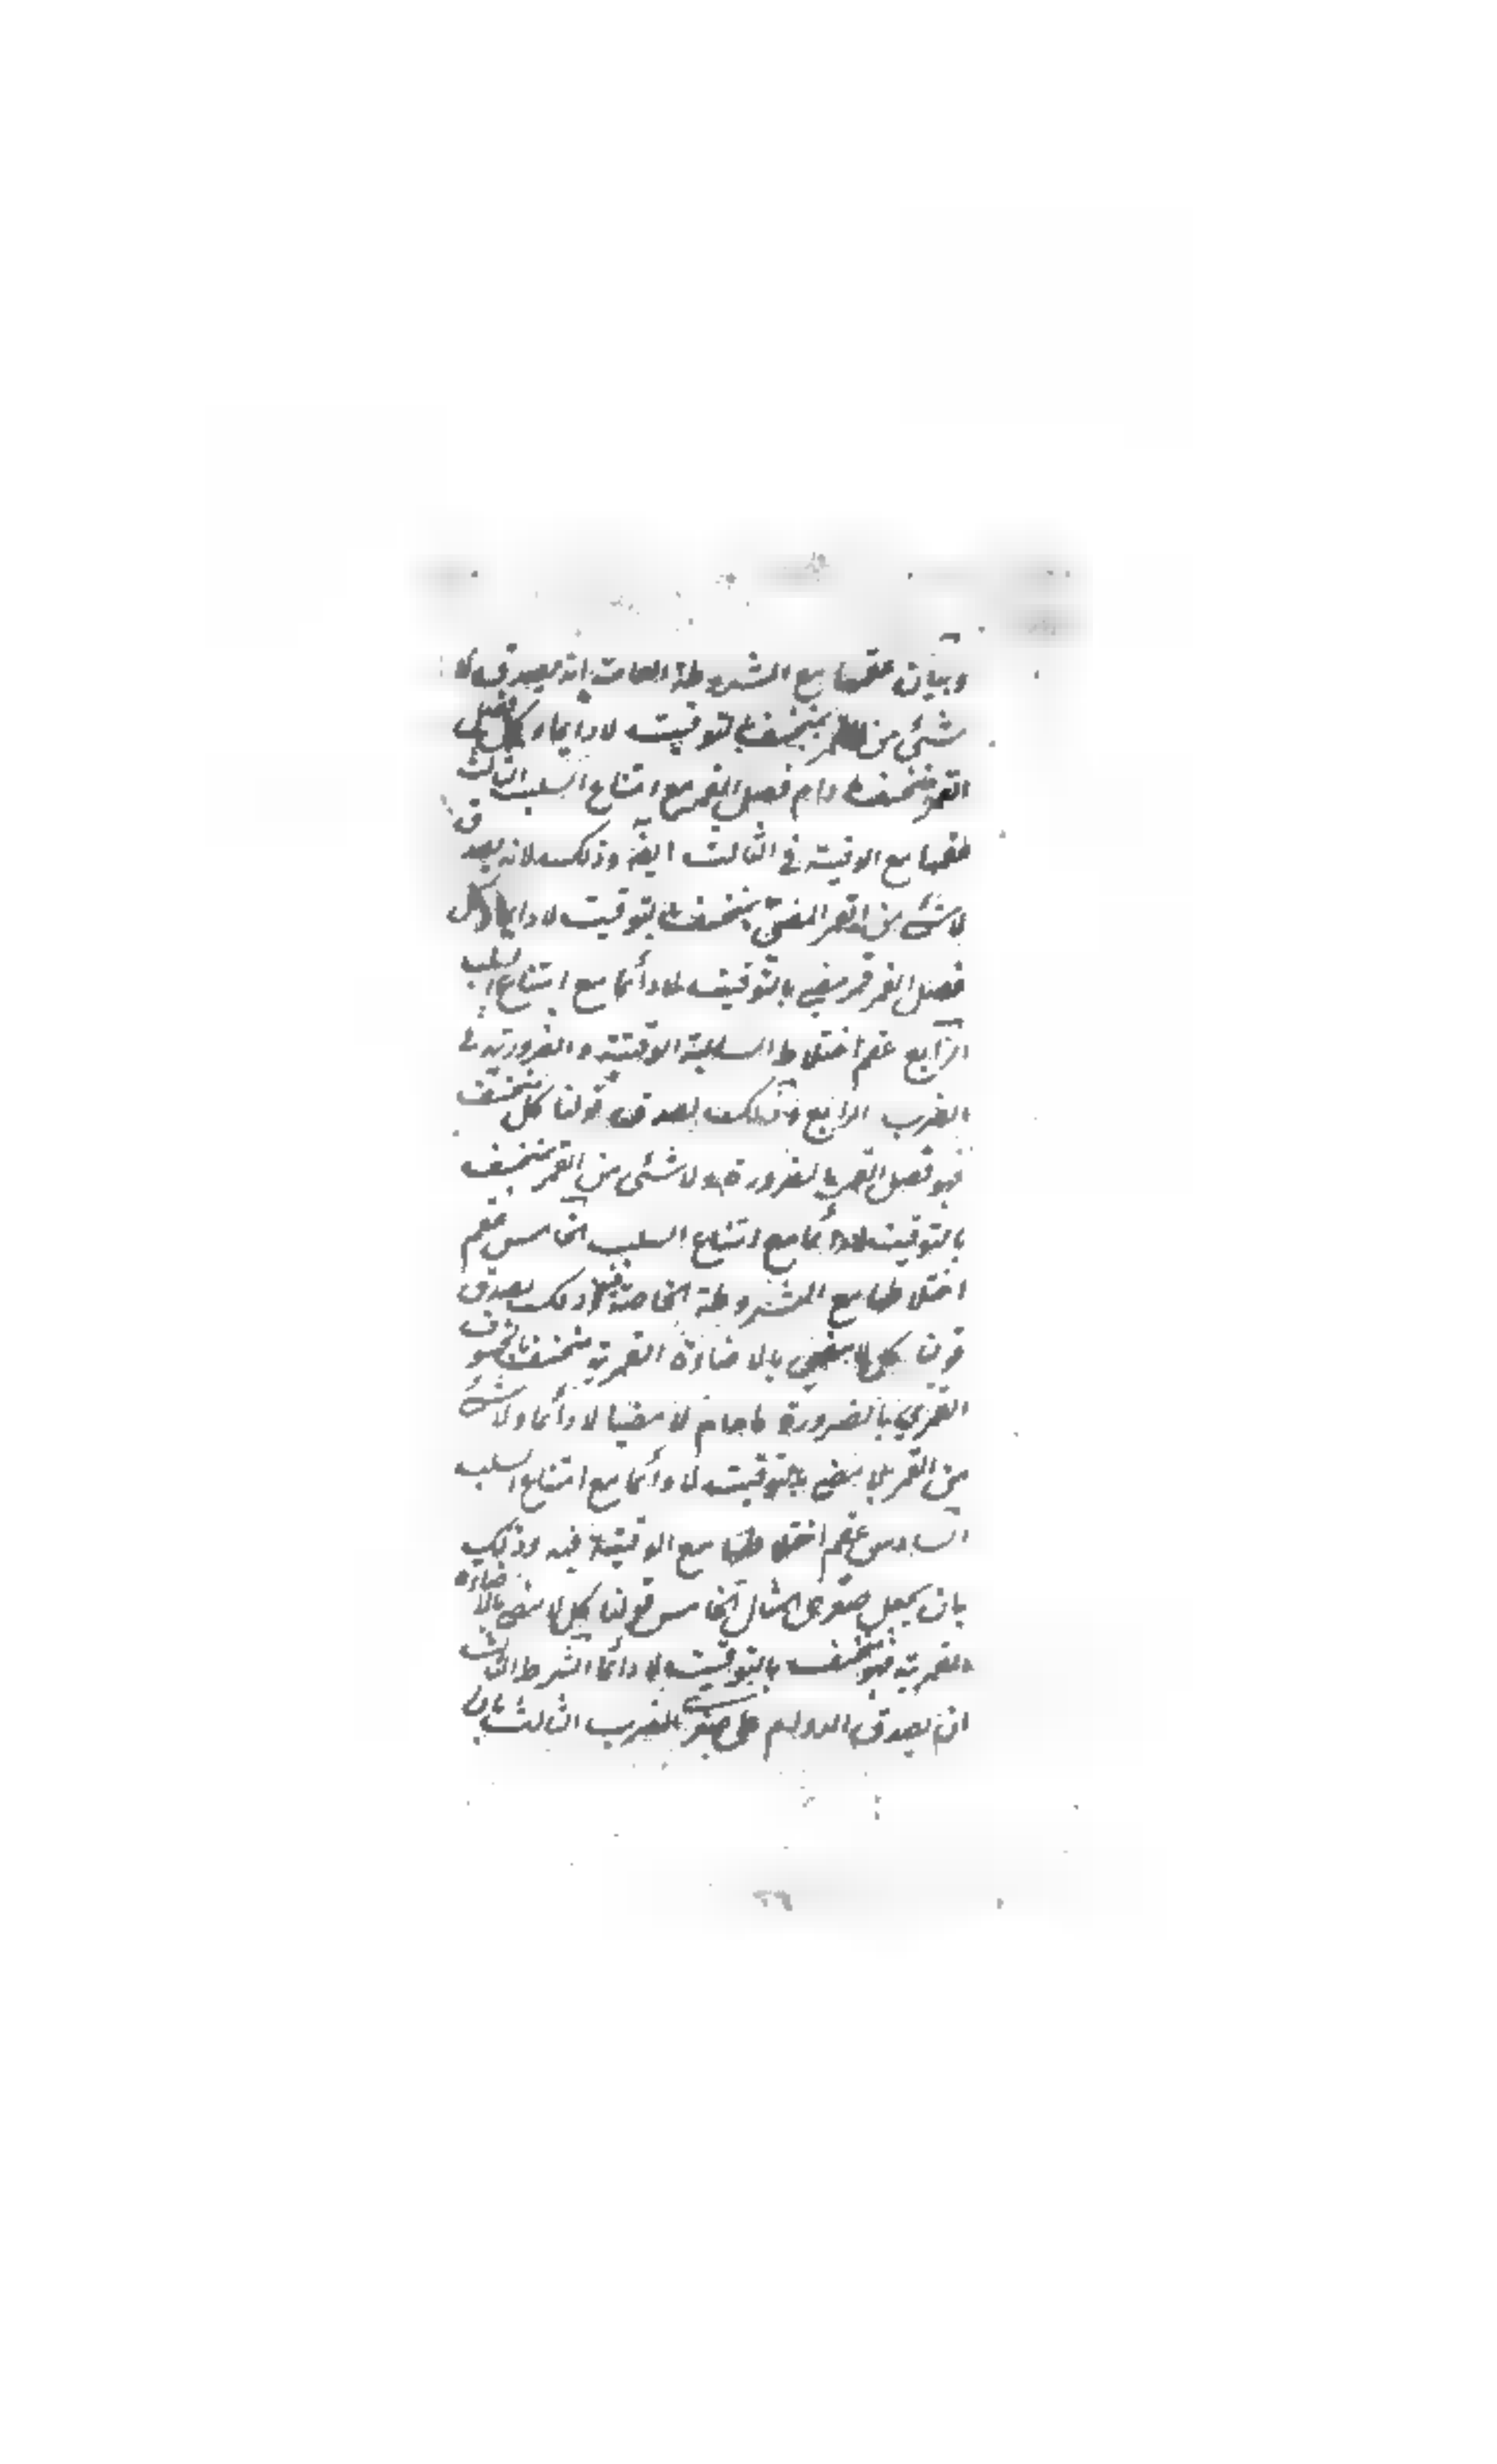 وبيان عقمها مع المشروطة العامة انه يصدق لا
شئ من القمر بمنخسف بالتوقيت لا دايما وكل فصل
القمر منخسف ما دام فصل القمر مع امتناع السلب الثالث
عقمها مع الوقتية في الثالث ايضا وذلك لانه يصدق
لا شئ من القمر المضئ بمنخسف بالتوقيت لا دايما وكل
فصل القمر قمر مضئ بالتوقيت لا دائما مع امتناع السلب
الرابع عقم اختلاط السالبة الوقتية والضرورية في
الضرب الرابع وذلك لصدق قولنا كل منخسف
فهو فصل القمر بالضرورة ولا شئ من القمر بمنخسف
بالتوقيت لا دائما مع امتناع السلب الخامس عقم
اختلاطها مع المشروطة الخاصة فيه وذلك لصدق
قولنا كل لا مضئ بالاضاءة القمرية منخسف بالخسوف
القمري بالضرورة ما دام لا مضيا لا دائما ولا شئ
من القمر بلا مضئ بالتوقيت لا دائما مع امتناع السلب
السادس عقم اختلاطها مع الوقتية فيه وذلك
بان يجعل صغرى المثال الخامس قولنا كل لا مضئ بالاضاءة
القمرية فهو منخسف بالتوقيت لا دائما الشرط الثالث
ان يصدق الدوام على صغرى الضرب الثالث بان
٢٦